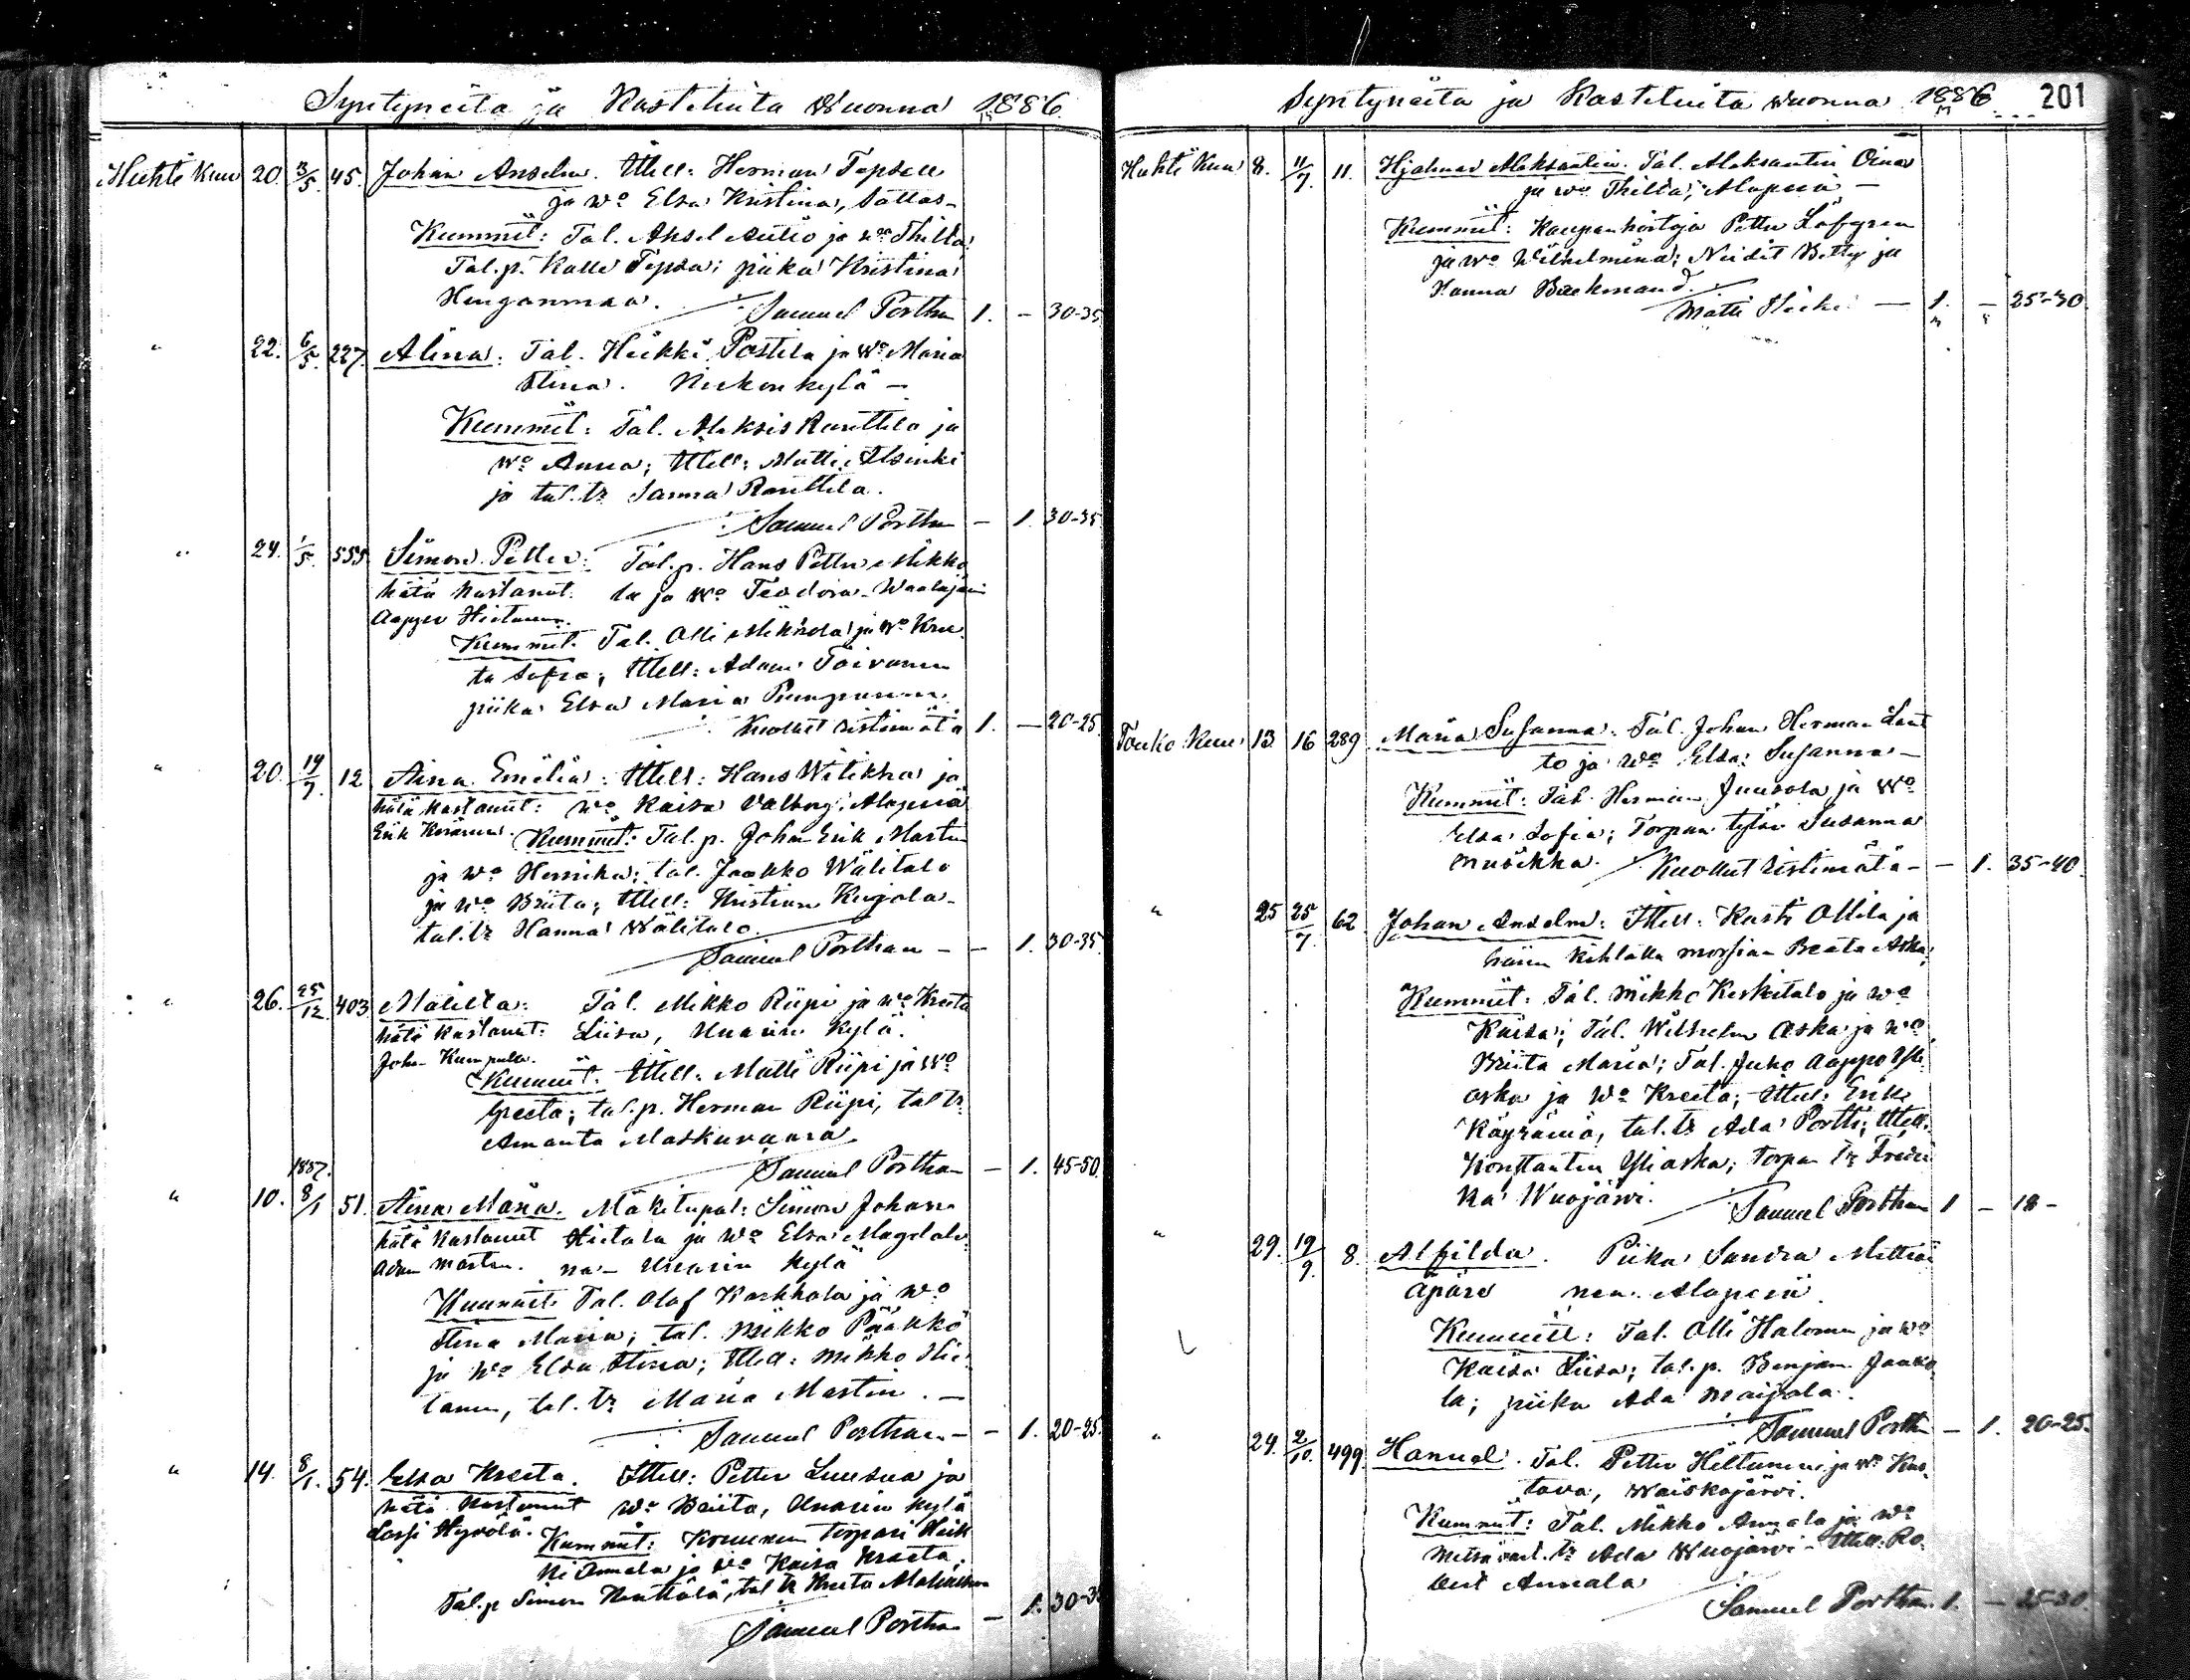 Syntyneitä ja Kastetuita Wuonna 1886
Huhti Kuu 20. 3/5. 45. Johan Anselm. Itell: Herman Tepsell
ja wo Elsa Kristina, Sattas-
Kummit: Tal. Aksel Autio ja wo Thilda;
Tal.p. Kalle Tepsa; piika Kristina
Hinganmaa.
Samuel Porthan 1. - 30-35
" 22. 6/5. 227. Alina: Tal. Heikki Postila ja wo Maria
Stina. Riekonkylä -
Kummit: Tal. Aleksis Ranttila ja
wo Anna; Itell: Matti
ja tal. tr Sanna Ranttila.
Samuel Porthan - 1. 30-35
" 24. 1/5. 555 Simon Petter: Tal.p. Hans Petter Mikko
hätä kastanut: la ja wo Teodora - Waalajärvi
Aappo Hietanen.
Kummit: Tal. Olli Mikkola ja wo Kree-
ta Sofia; Itell: Adam Toivanen
piika Elsa Maria Pumpanen.
Kuollut ristimätä 1. - 20-25
" 20. 19/7. 12 Aina Emilia: Itell: Hans Witikka ja
hätä kastanut: wo Kaisa Valborg; Alaperä
Erik Keränen. Kummit: Tal.p. Johan Erik Martin
ja wo Henrika; tal. Jaakko Wälitalo
ja wo Briita; Itell: Kristian Kujala -
tal. tr Hanna Wälitalo.
Samuel Porthan - - 1. 30-35
" 26. 25/12. 403 Matilda: Tal. Mikko Riipi ja wo Kreeta
hätä kastanut: Liisa, Unarin kylä.
Joh. Kumpula.
Kummit: Itell: Matti Riipi ja wo
Greeta; tal.p. Herman Riipi, tal tr
Amanta Maskuvaara
Samuel Porthan - 1. 45-50
1887.
" 10. 8/1 51. Aina Maria. Mäkitupal: Simon Johan
hätä kastanut Hietala ja wo Elsa Magdale-
Adam Martin. na - Unarin kylä
Kummit: Tal. Olaf Karhhala ja wo
Stina Maria; tal. Mikko Pääkkö
ja wo Elsa Stina; Itell: Mikko Hie-
tanen, tal. tr Maria Martin. -
Samuel Porthan - - 1. 20-25.
" 14. 8/1. 54. Elsa Kreeta. Itell: Petter Luusua ja
hätä kastanut wo Briita, Unarin kylä
Lassi Hyvölä. Kummit: Kruunun torpari Heik
ki Annala ja wo Kaisa Kreeta.
Tal.p Simon Kenttälä, tal tr Kreeta
Samuel Porthan - 1. 30-35
Syntyneitä ja Kastetuita Wuonna 1886 201
Huhti Kuu 8. 11/7. 11. Hjalmar Aleksantin. Tal. Aleksantin Oinas
ja wo Thilda; Alaperä -
Kummit: Kaupanhoitaja Petter Löfgren
ja wo Wilhelmina; Neidit Betty ja
Hanna Backmand.
Matti Heiki - 1. - 25-30
Touko Kuu 13 16 289 Maria Susanna: Tal. Johan Herman Laut
to ja wo Elsa Susanna -
Kummit: Tal. Herman Juusola ja wo
Elsa Sofia; Torpan tytär Susanna
Musikka. Kuollut ristimätä - - 1. 35-40
" 25 25/7. 62 Johan Anselm: Itell: Kusti Ollila ja
hänen kihlattu morsian Beata Aska;
Kummit: Tal. Mikko Keskitalo ja wo
Kaisa; Tal. Wilhelm Aska ja wo
Briita Maria; Tal. Juho Aappo Yli-
aska ja wo Kreeta; Itell: Erik
Käyrämö, tal. tr Ada Portti; Itell:
Konstantin Yliaska; Torpan tr Fredri
ka Wuojärvi.
Samuel Porthan 1 - 18 -
" 29. 19/9. 8. Alfilda. Piika Sandra Mattinen
äpärä nen. Alaperä
Kummit: Tal. Olli Halonen ja wo
Kaisa Liisa; tal.p. Benjam. Jaako
la; piika Ada Maijala.
Samuel Porthan - 1. 20-25.
" 24. 2/10. 499. Hanna. Tal. Petter Hiltunen ja wo Kus-
tava, Waiskojärvi.
Kummit: Tal. Mikko Annala ja wo
Metsävart. tr Ada Wuojärvi - Itell. Ro-
bert Annala
Samuel Porthan. 1. - 25-30.